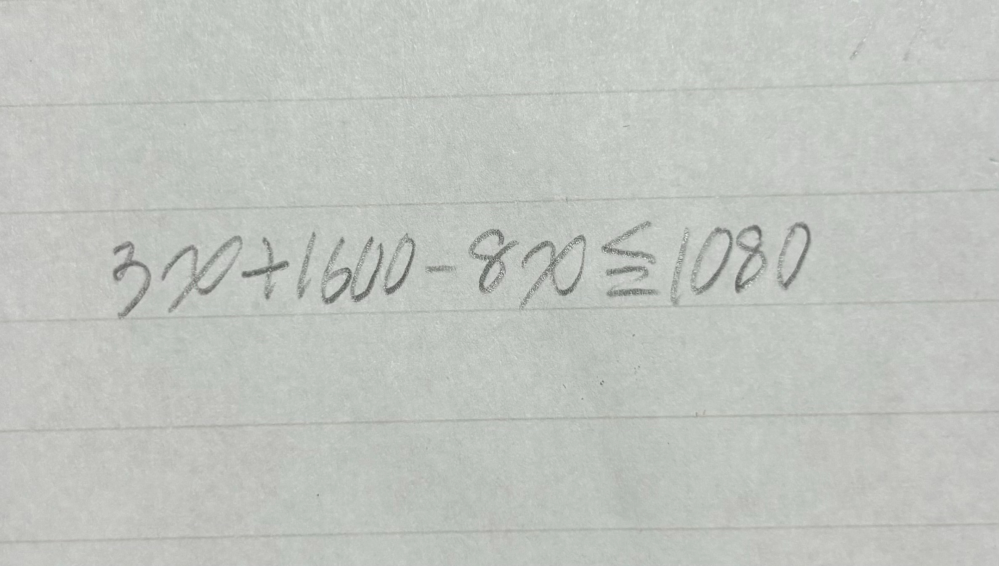 3x+1600-8x≦1080